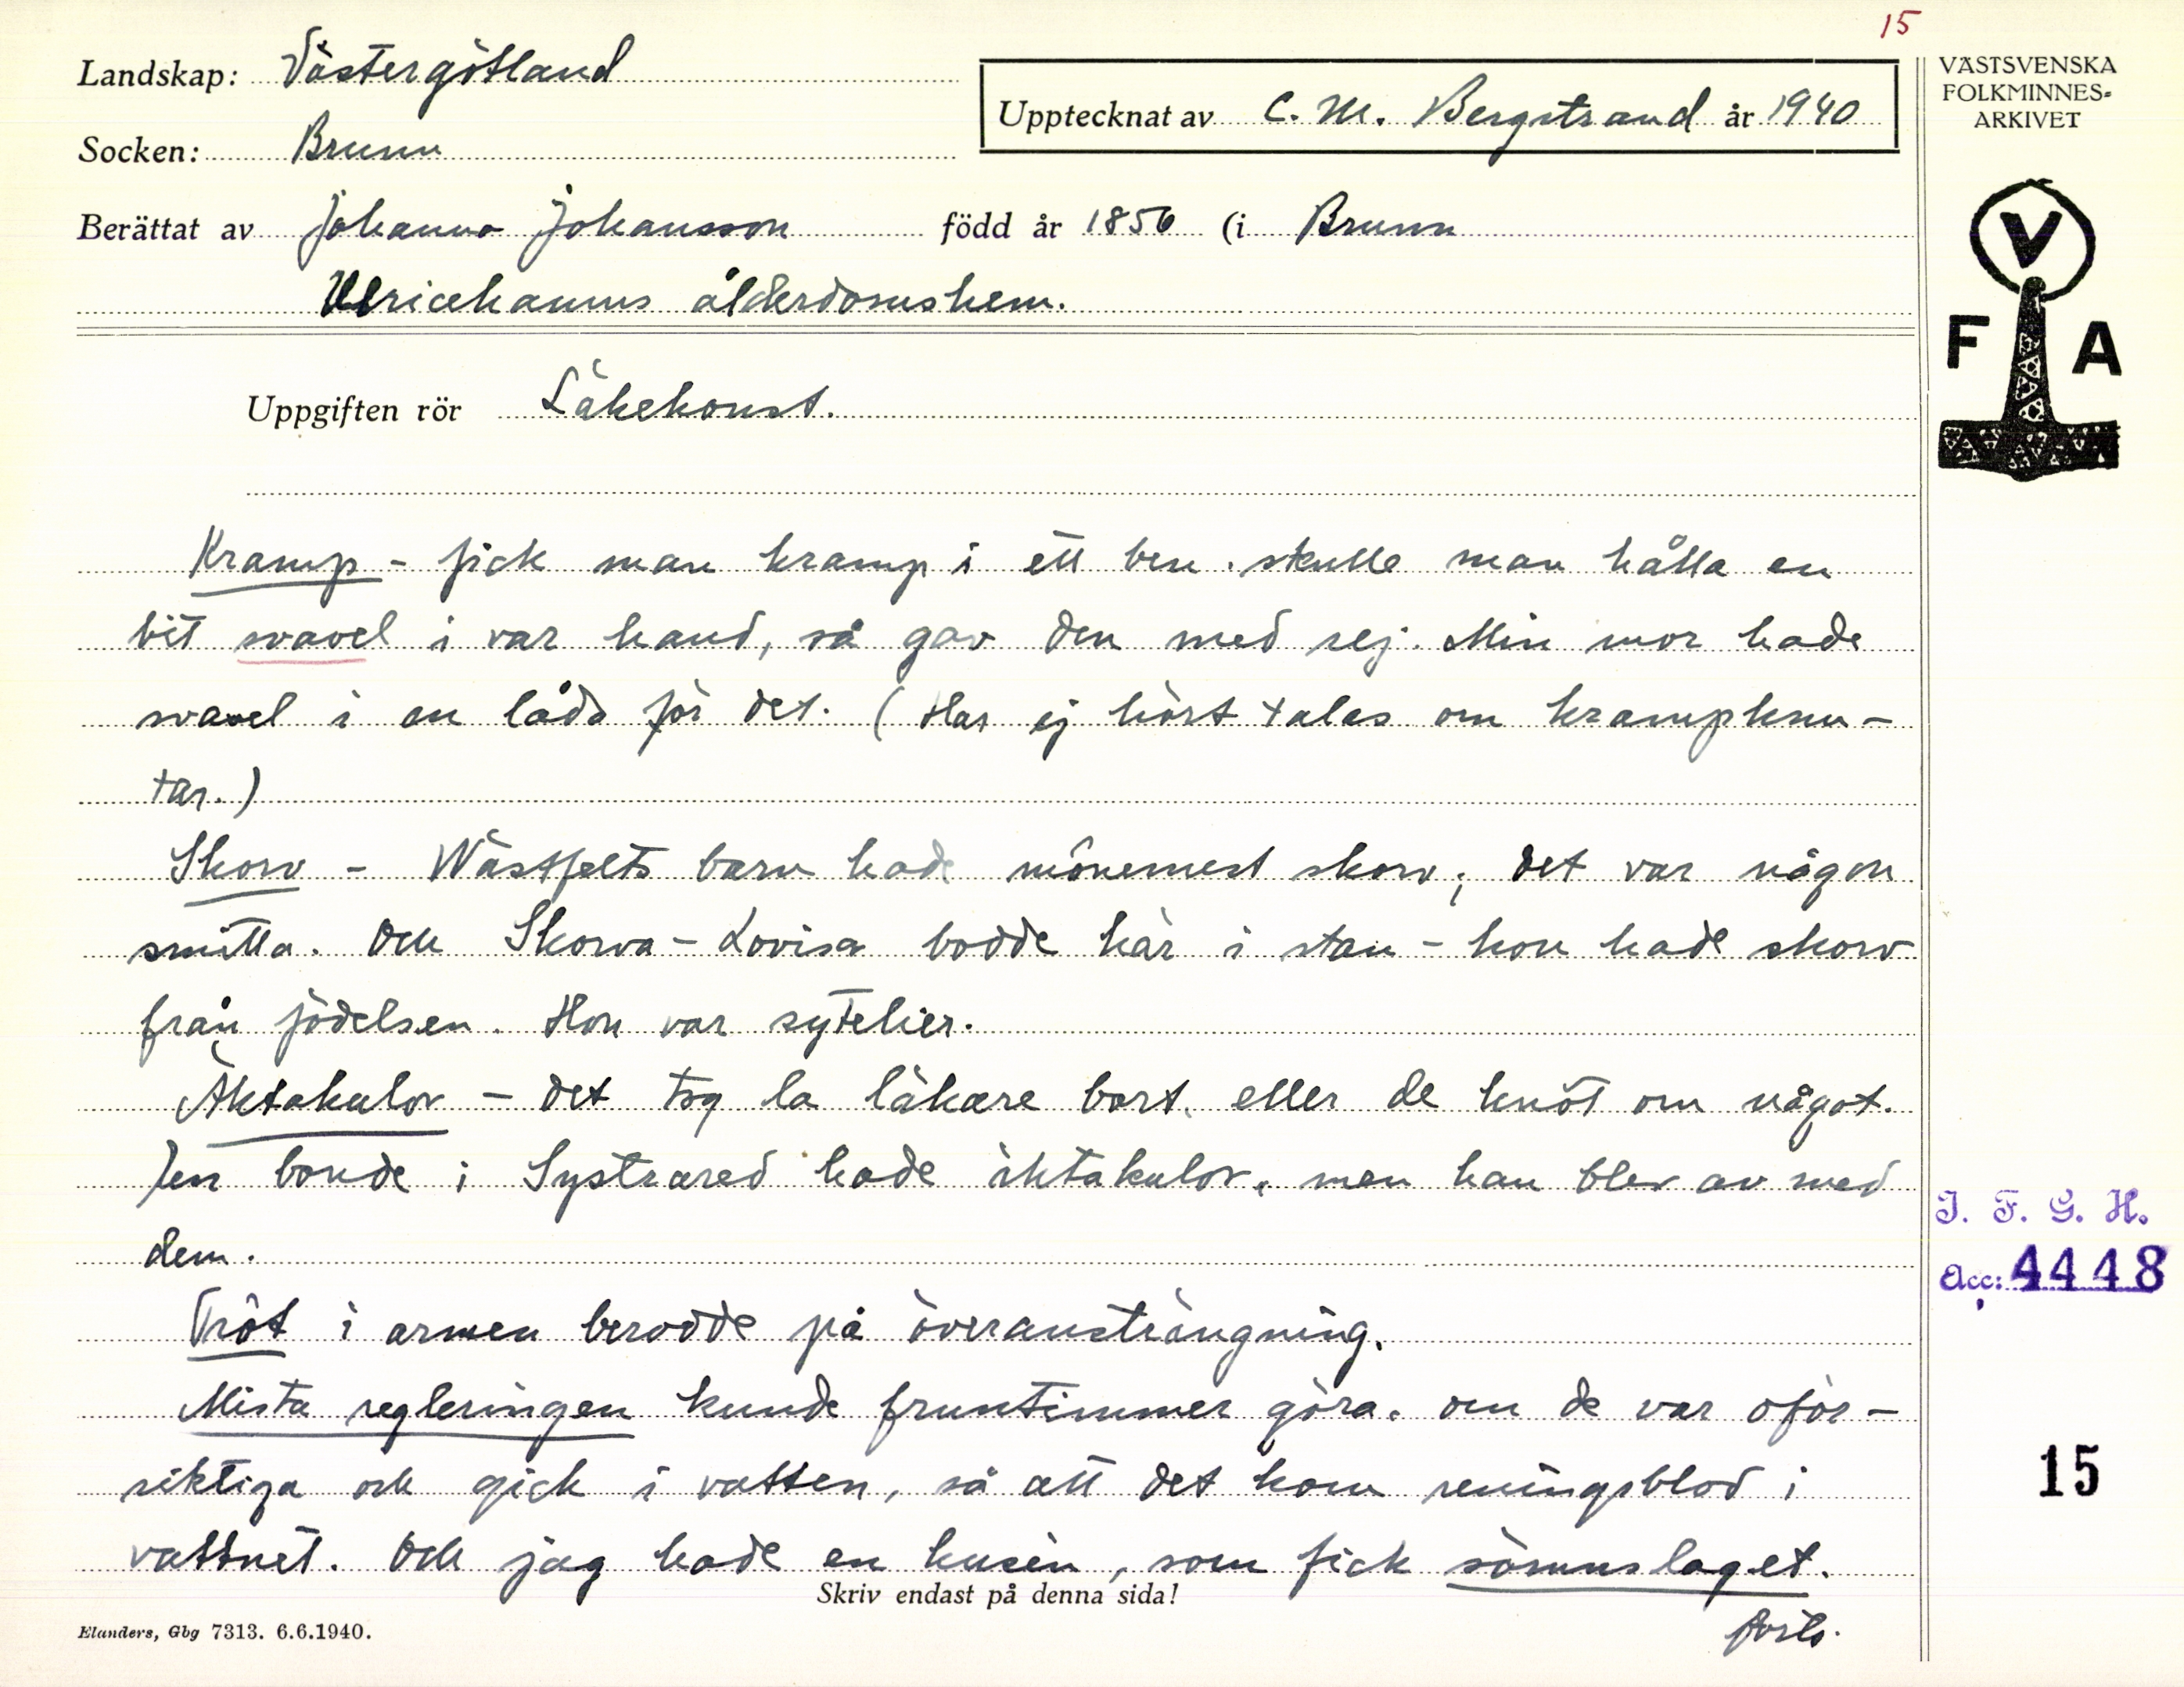 15
Landskap: Västergötland
VÄSTSVENSKA
FOLKMINNES-
ARKIVET
Upptecknat av C. M. Bergstrand år 1940
Socken: Brunn
Berättat av Johanna Johansson född år 1856 (i Brunn
Ulricehamns ålderdomshem.
V
F A
Uppgiften rör Läkekonst.
Kramp - fick man kramp i ett ben, skulle man hålla en
bit svavel i var hand, så gav den med sej. Min mor hade
svavel i en låda för det. (Har ej hört talas om krampknu-
tar.)
Skorv - Wästfelts barn hade månemest skorv; det var någon
smitta. Och Skorva-Lovisa bodde här i stan - hon hade skorv
från födelsen. Hon var sytelier.
Äktakulor - det tog la läkare bort, eller de knöt om något.
En bonde i Systrared hade äktakulor, men han blev av med
dem.
Tröt i armen berodde på överansträngning.
Mista regleringen kunde fruntimmer göra, om de var oför-
siktiga och gick i vatten, så att det kom reningsblod i
vattnet. Och jag hade en kusin, som fick sömnslaget.
Skriv endast på denna sida!
forts.
Elanders, Gbg 7313. 6.6.1940.
I. F. G. H.
Acc: 4448
15